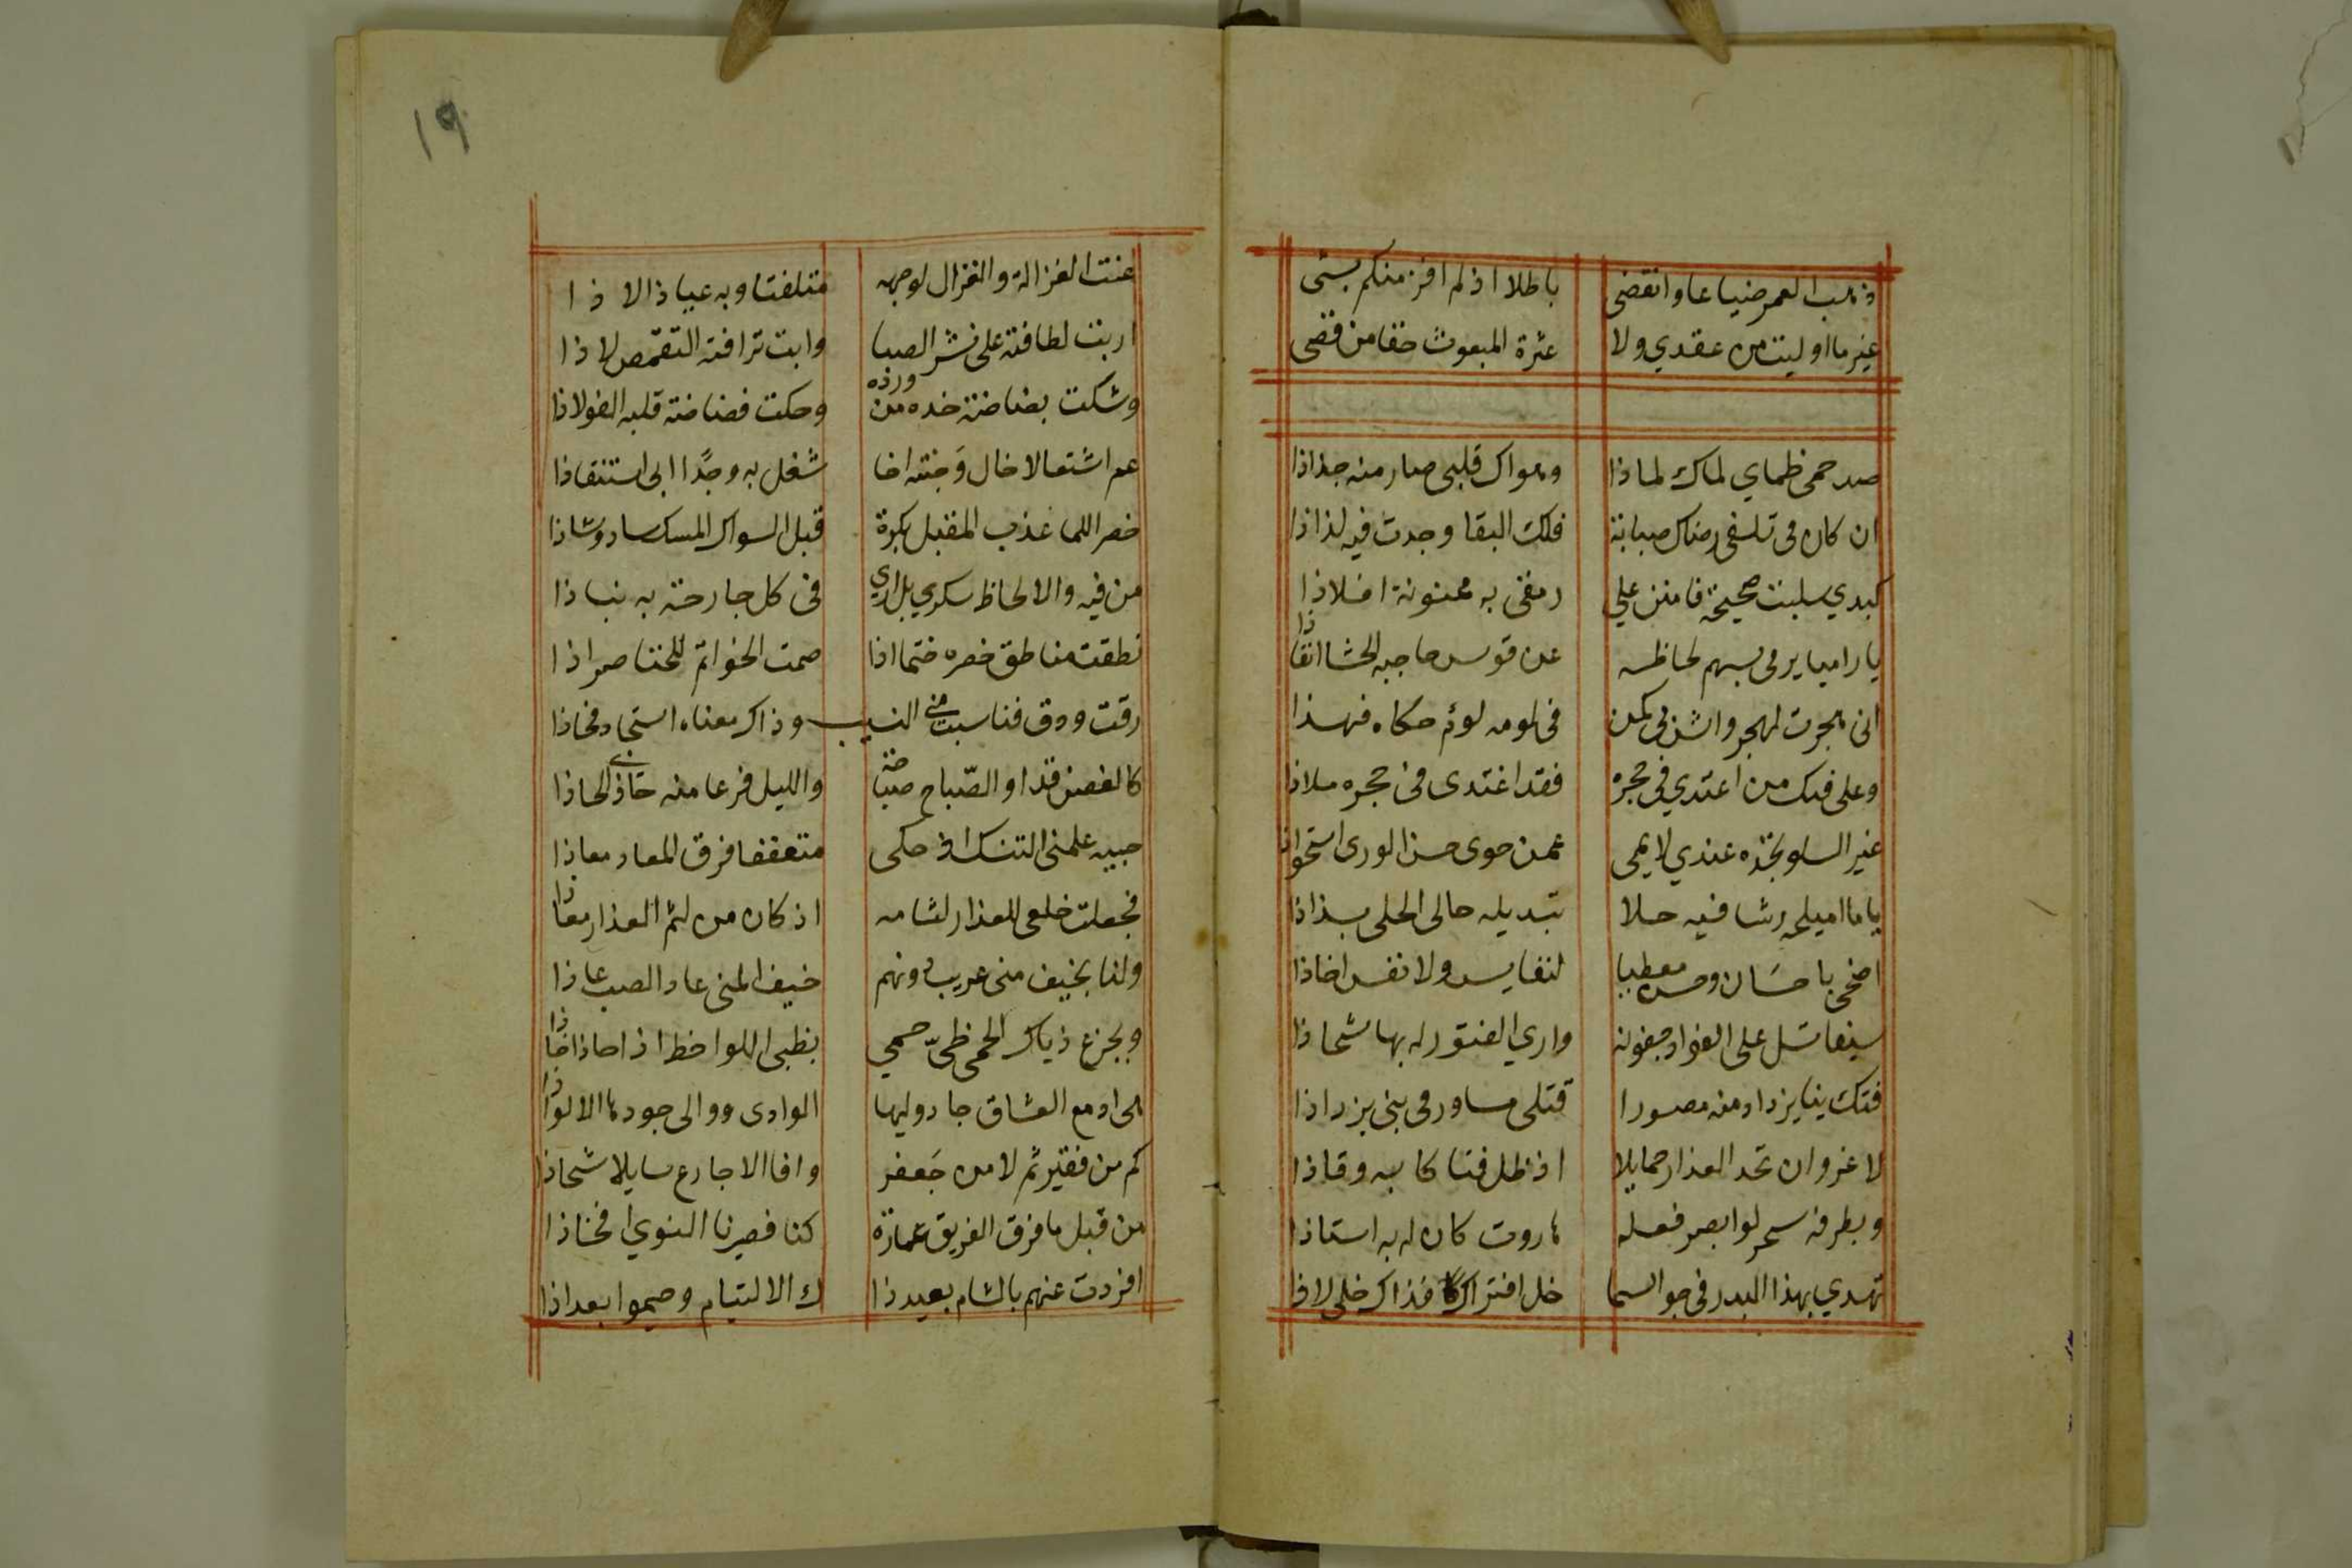 ذهب العمر ضياعا وانقضى باطلا اذ لم افز منكم بشى
غير ما اوليت من عقدي ولا عترة المبعوث حقا من قصى
صد حمى ظماي لماك لماذا وهواك قلبي صار منه جذاذا
ان كان فى تلفى رضاك صبابة فلك البقا وجدت فيه لذاذا
كبدي سلبت صحيحة فامنن علي رمقى به ممنونة افلاذا
يا راميا يرمى بسهم لحاظه عن قوس حاجبه الحشا انفاذا
انى هجرت لهجر واش بى كمن فى لومه لؤم حكاه فهذا
وعلى فيك من اعتدي فى حجره فقد اغتدى فى حجره ملاذا
غير السلو تجده عندي لايمى عمن حوى حسن الورى استحواذا
يا ما اميلحه رشا فيه حلا تبديله حالى الحلى بذاذا
اضحى باحسان وحسن معطيا لنفايس ولانفس اخاذا
سيفا تسل على الفواد جفونه واري الفتور له بها شحاذا
فتك بنا يزداد منه مصورا قتلى مساور فى بنى يزداذا
لا غرو ان تخذ العذار حمايلا اذ ظل فتاكا به وقاذا
وبطرفه سحر لو ابصر فعله هاروت كان له به استاذا
تهدي بهذا البدر فى جو السما خل افتراك فذاك خلى لا ذا
١٩
عنت الغزالة والغزال لوجهه متلفتا وبه عياذا لاذا
اربت لطافته على نشر الصبا وابت ترافته التقمص لاذا
وشكت بضاضة خده من ورده وحكت فضاضة قلبه الفولاذا
عم اشتعالا خال وجنته اخا شغل به وجدا ابى استنقاذا
خصر اللما عذب المقبل بكرة قبل السواك المسك ساد وشاذا
من فيه والالحاظ سكري بل اري فى كل جارحة به نباذا
نطقت مناطق خصره ختما اذا صمت الخواتم للخناصر اذا
رقت ودق فناسبت منى النسيب وذاك معناه استجاد فحاذا
كالغصن قدا والصباح صباحة والليل فرعا منه حاذى الحاذا
حبيه علمنى التنسك اذ حكى متعففا فرق المعاد معاذا
فجعلت خلعى للعذار لثامه اذ كان من لثم العذار معاذا
ولنا بخيف منى عريب دونهم خيف المنى عاد الصب عاذا
وبجزع ذياك الحمى ظبي حمي بظبى اللواحظ اذ احاذ اخاذا
هى ادمع العشاق جاد وليها الوادى ووالى جودها الالواذا
كم من فقير ثم لا من جعفر وافا الاجارع سايلا شحاذا
من قبل ما فرق الفريق عمارة كنا فصيرنا النوي افخاذا
افردت عنهم بالشام بعيد ذا ك الالتيام وخيموا بغداذا